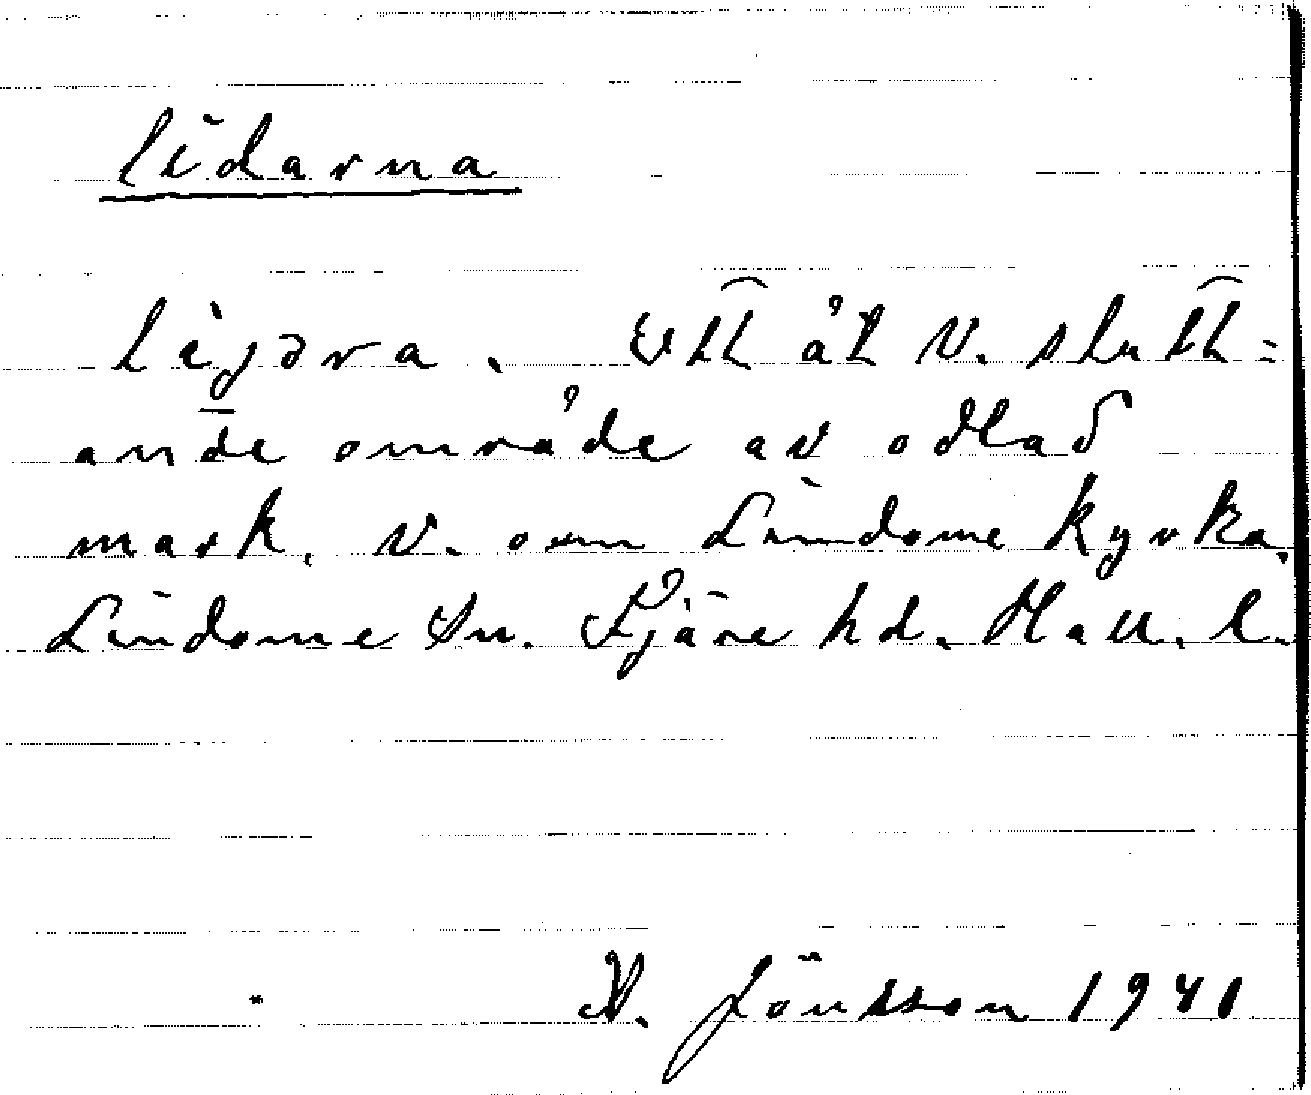 lidarna
lìjəra. Ett åt V. slutt=
ande område av odlad
mark, V. om Lindome kyrka.
Lindome Sn. Fjäre hd. Hall. l.
V. Jönsson 1941